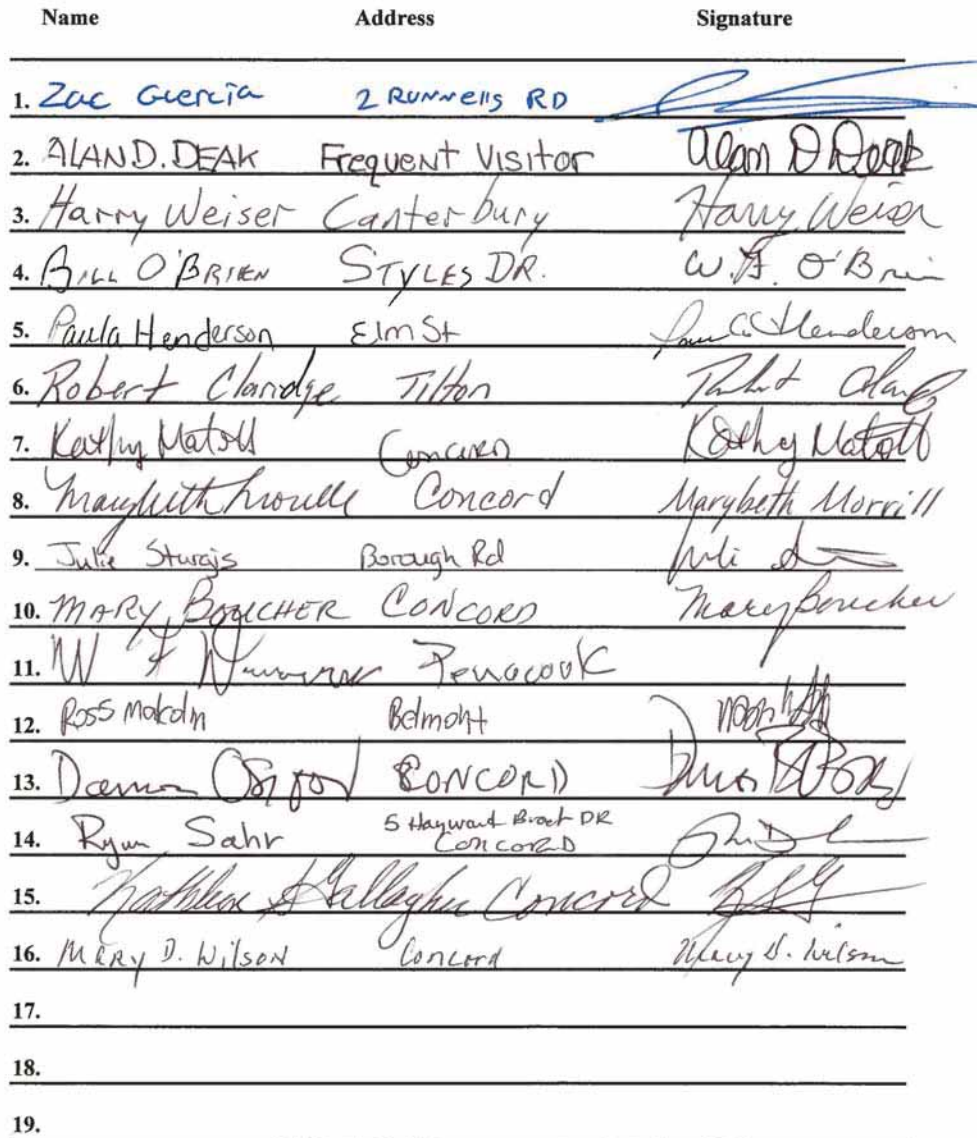 Name Address Signature
1. Zac Guercia 2 RUNNells RD
2. ALAN D. DEAK Frequent Visitor Alan D Deak
3. Harry Weiser Canterbury Harry Weiser
4. BILL O'BRIEN STYLES DR. W. F. O'Brien
5. Paula Henderson Elm St Paula Henderson
6. Robert Claridge Tilton
7. Kathy Matott Concord Kathy Matott
8. Marybeth Morrill Concord Marybeth Morrill
9. Julie Sturgis Borough Rd
10. MARY BOUCHER CONCORD Mary Boucher
11. W F Penacook
12. Ross Malcolm Belmont
13. Osgood CONCORD
14. Ryan Sahr 5 Hayward Brook DR
CONCORD
15. Kathleen Gallagher Concord
16. MARY D. WILSON Concord Mary D. Wilson
17.
18.
19.